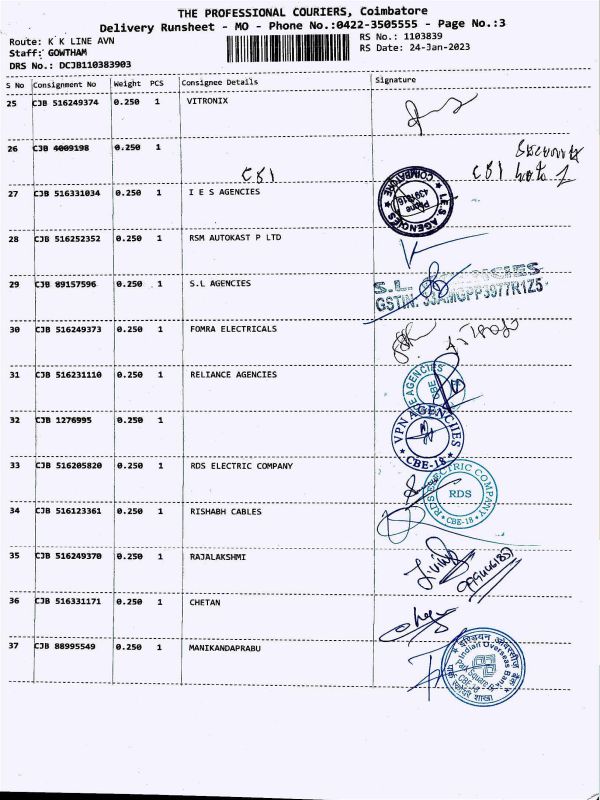 THE PROFESSIONAL COURIERS, Coimbatore
Delivery Runsheet - MO - Phone No.:0422-3505555 - Page No.:3
Route: K K LINE AVN
RS No.: 1103839
Staff: GOWTHAM
RS Date: 24-Jan-2023
DRS No.: DCJB110383903
S No Consignment No Weight PCS Consignee Details Signature
25 CJB 516249374 0.250 1 VITRONIX
26 CJB 4009198 0.250 1
CBI
CBI
27 CJB 516331034 0.250 1 I E S AGENCIES
I.E.S. AGENCIES
COIMBATORE
Phone
4391616
28 CJB 516252352 0.250 1 RSM AUTOKAST P LTD
29 CJB 89157596 0.250 1 S.L AGENCIES
S.L. AGENCIES
GSTIN. 33AMGPP3977R1Z5
30 CJB 516249373 0.250 1 FOMRA ELECTRICALS
31 CJB 516231110 0.250 1 RELIANCE AGENCIES
AGENCIES
CBE
32 CJB 1276995 0.250 1
VPN AGENCIES
CBE-18
33 CJB 516205820 0.250 1 RDS ELECTRIC COMPANY
RDS ELECTRIC COMPANY
RDS
CBE-18
34 CJB 516123361 0.250 1 RISHABH CABLES
35 CJB 516249370 0.250 1 RAJALAKSHMI
36 CJB 516331171 0.250 1 CHETAN
37 CJB 88995549 0.250 1 MANIKANDAPRABU
इण्डियन ओवरसीज़ बैंक
Indian Overseas Bank
Park Square Br.
CBE-18
शाखा